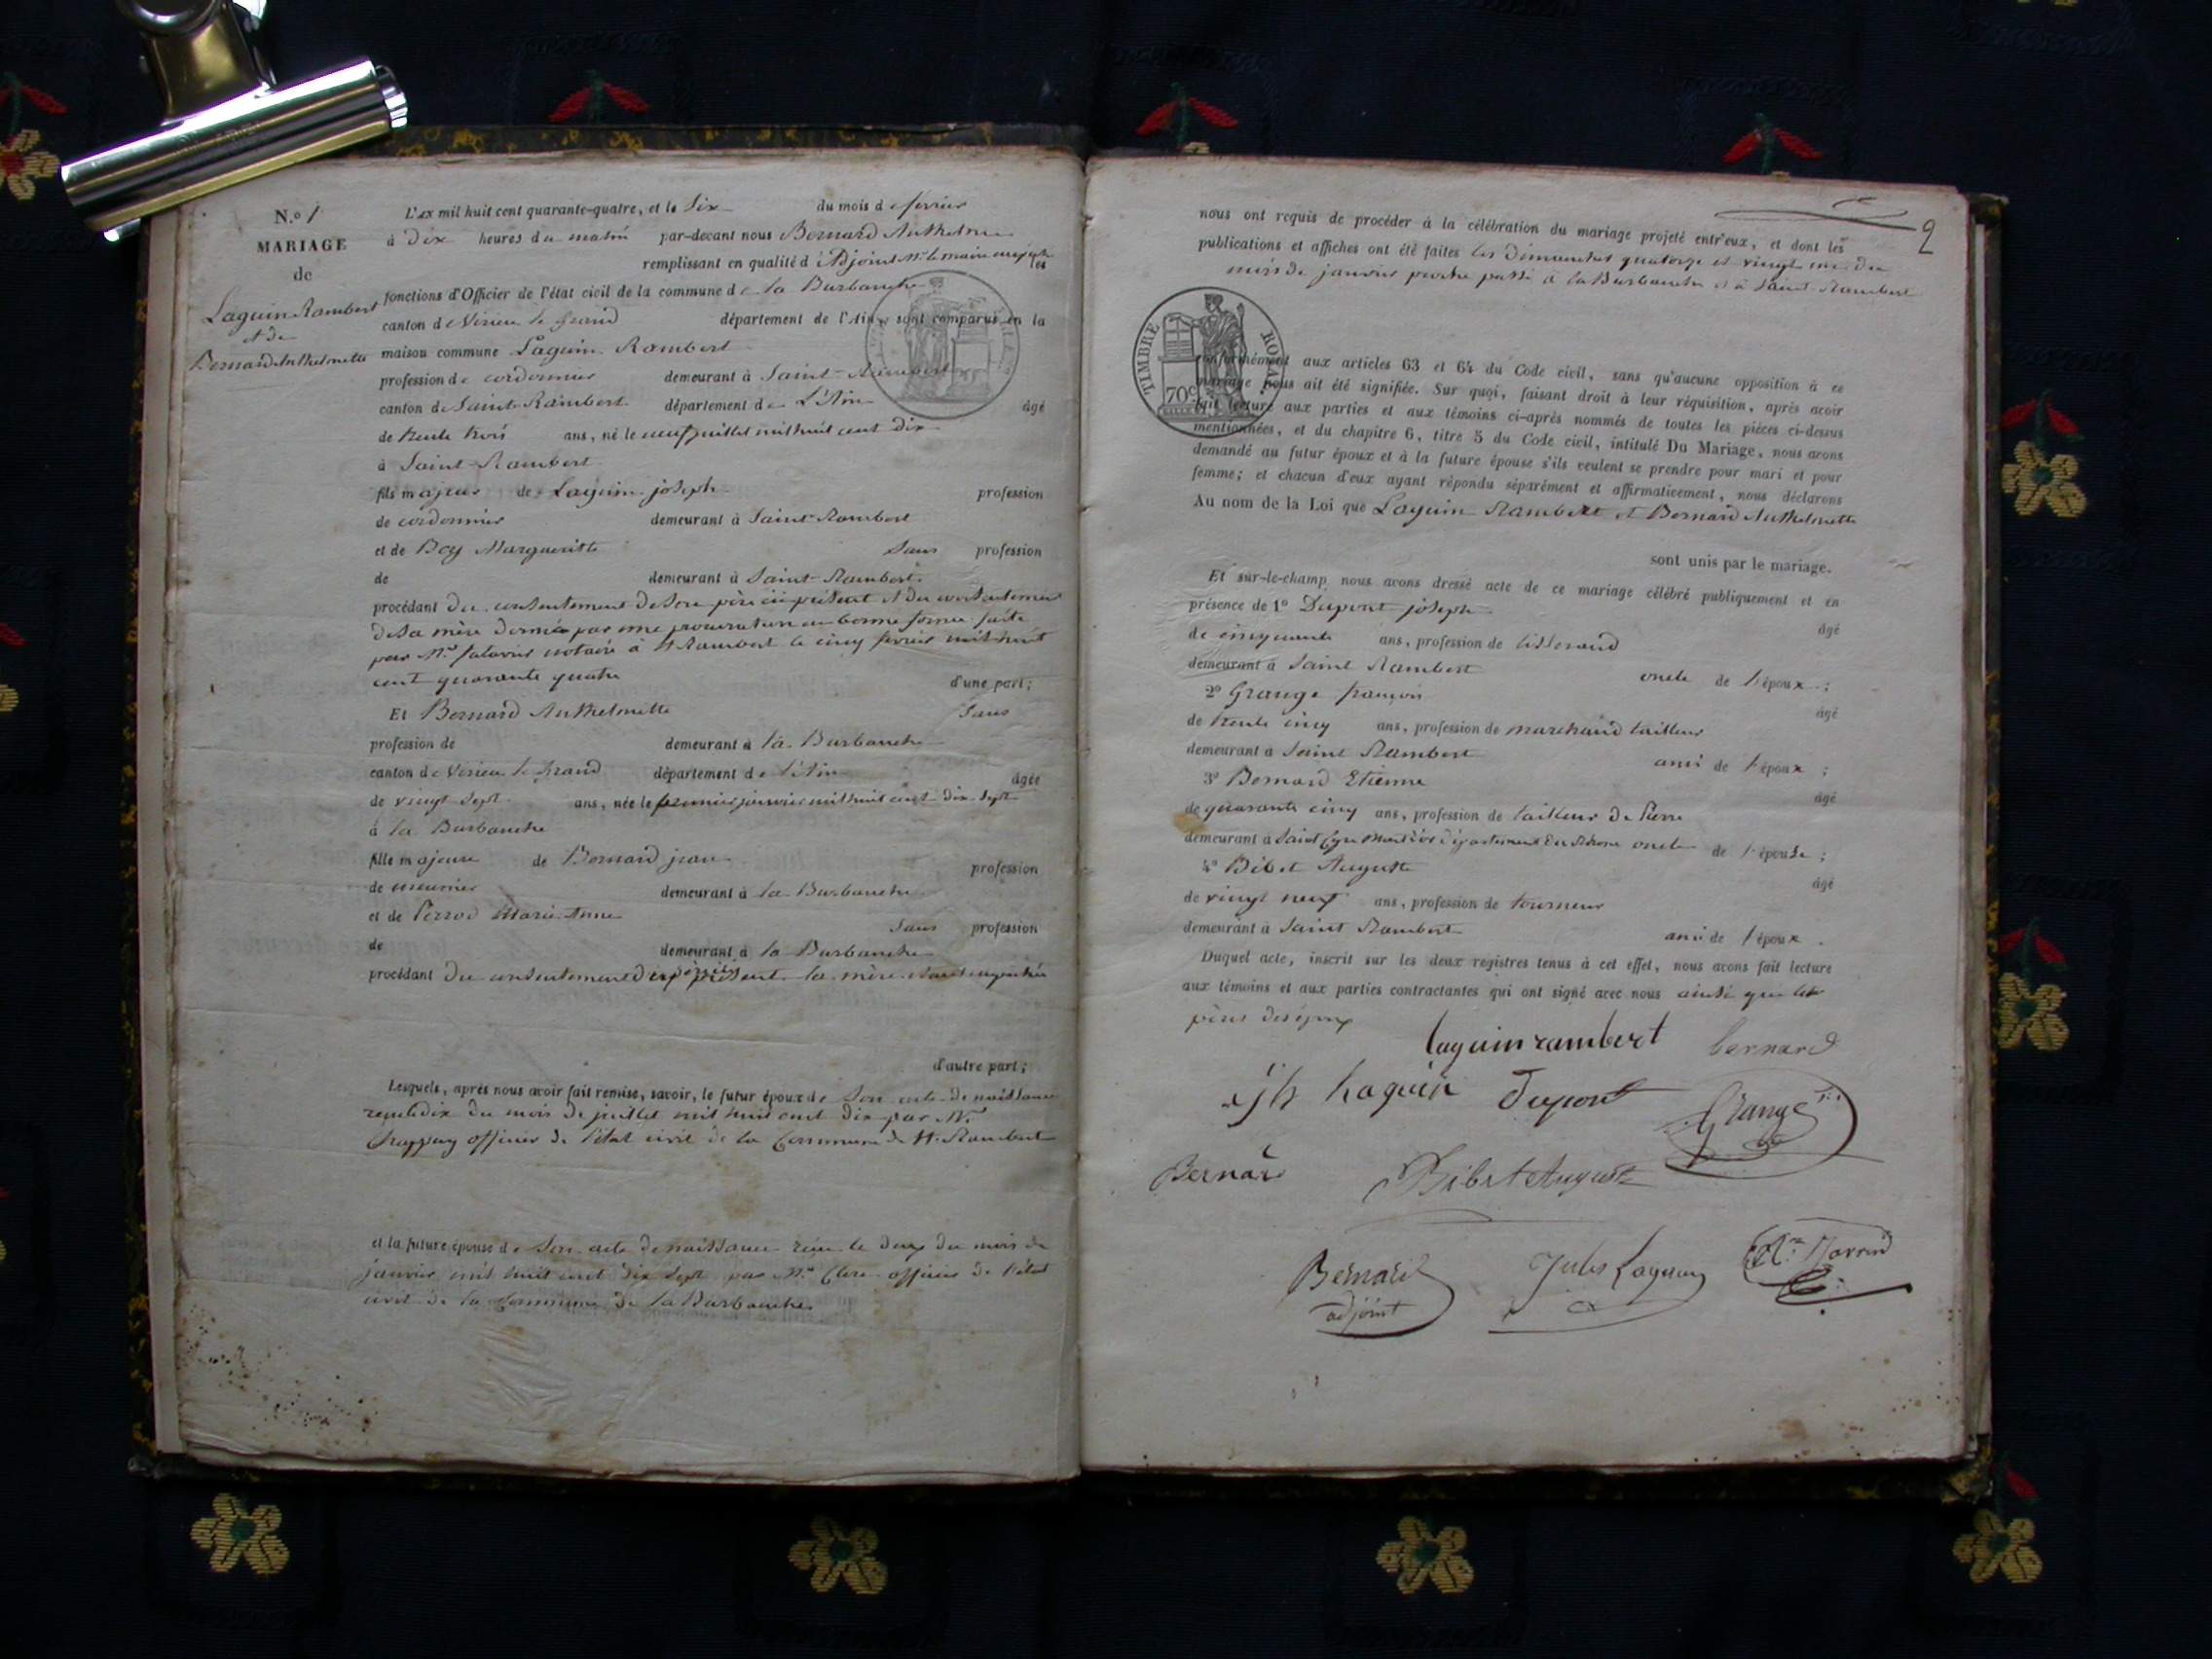 N.º 1
MARIAGE
de
Laguin Rambert
et de
Bernard Anthelmette
L'an mil huit cent quarante-quatre, et le Six du mois de février
à Dix heures du matin par-devant nous Bernard Anthelme
remplissant en qualité d'Adjoint Mr le maire empêché les
fonctions d'Officier de l'état civil de la commune de la Burbanche
canton de Virieu le Grand département de l'Ain, sont comparus en la
maison commune Laguin Rambert
profession de cordonnier demeurant à Saint-Rambert
canton de Saint-Rambert département de L'Ain âgé
de trente trois ans, né le neuf juillet mil huit cent dix
à Saint-Rambert
fils majeur de Laguin joseph profession
de cordonnier demeurant à Saint-Rambert
et de Boy Margueritte Sans profession
de demeurant à Saint-Rambert.
procédant du consentement de Son père ici présent et du consentement
de Sa mère donné par une procuration en bonne forme faite
par Mr notaire à St Rambert le cinq février mil huit
cent quarante quatre d'une part;
Et Bernard Anthelmette Sans
profession de demeurant à la Burbanche
canton de Virieu le Grand département de l'Ain âgée
de vingt Sept ans, née le premier janvier mil huit cent dix Sept
à la Burbanche
fille majeure de Bernard jean profession
de meunier demeurant à la Burbanche
et de Perrod Marie Anne Sans profession
de demeurant à la Burbanche
procédant du consentement du père présent la mère
d'autre part;
Lesquels, après nous avoir fait remise, savoir, le futur époux de Son acte de naissance
reçu le dix du mois de juillet mil huit cent dix par Mr
officier de l'état civil de la Commune de St. Rambert
et la future épouse de Son acte de naissance reçu le deux du mois de
janvier mil huit cent dix Sept par Mr Clerc officier de l'état
civil de la Commune de la Burbanche
2
nous ont requis de procéder à la célébration du mariage projeté entr'eux, et dont les
publications et affiches ont été faites les dimanches quatorze et vingt un du
mois de janvier proche passé à la Burbanche et à Saint-Rambert
TIMBRE ROYAL
70c
conformément aux articles 63 et 64 du Code civil, sans qu'aucune opposition à ce
mariage nous ait été signifiée. Sur quoi, faisant droit à leur réquisition, après avoir
fait lecture aux parties et aux témoins ci-après nommés de toutes les pièces ci-dessus
mentionnées, et du chapitre 6, titre 5 du Code civil, intitulé Du Mariage, nous avons
demandé au futur époux et à la future épouse s'ils veulent se prendre pour mari et pour
femme; et chacun d'eux ayant répondu séparément et affirmativement, nous déclarons
Au nom de la Loi que Laguin Rambert et Bernard Anthelmette
sont unis par le mariage.
Et sur-le-champ nous avons dressé acte de ce mariage célébré publiquement et en
présence de 1º Dupont joseph âgé
de cinquante ans, profession de tisserand
demeurant à Saint Rambert oncle de l'époux;
2º Grange françois âgé
de trente cinq ans, profession de marchand tailleur
demeurant à Saint Rambert ami de l'époux;
3º Bernard Etienne âgé
de quarante cinq ans, profession de tailleur de Pierre
demeurant à Saint Cyr Mont d'or département du Rhône oncle de l'épouse;
4º Bibet Auguste âgé
de vingt neuf ans, profession de tourneur
demeurant à Saint Rambert ami de l'époux.
Duquel acte, inscrit sur les deux registres tenus à cet effet, nous avons fait lecture
aux témoins et aux parties contractantes qui ont signé avec nous ainsi que les
pères des époux
laguin rambert bernard
jh Laguin Dupont Grange
Bernard Bibet Auguste
Bernard adjoint Jules Laguin